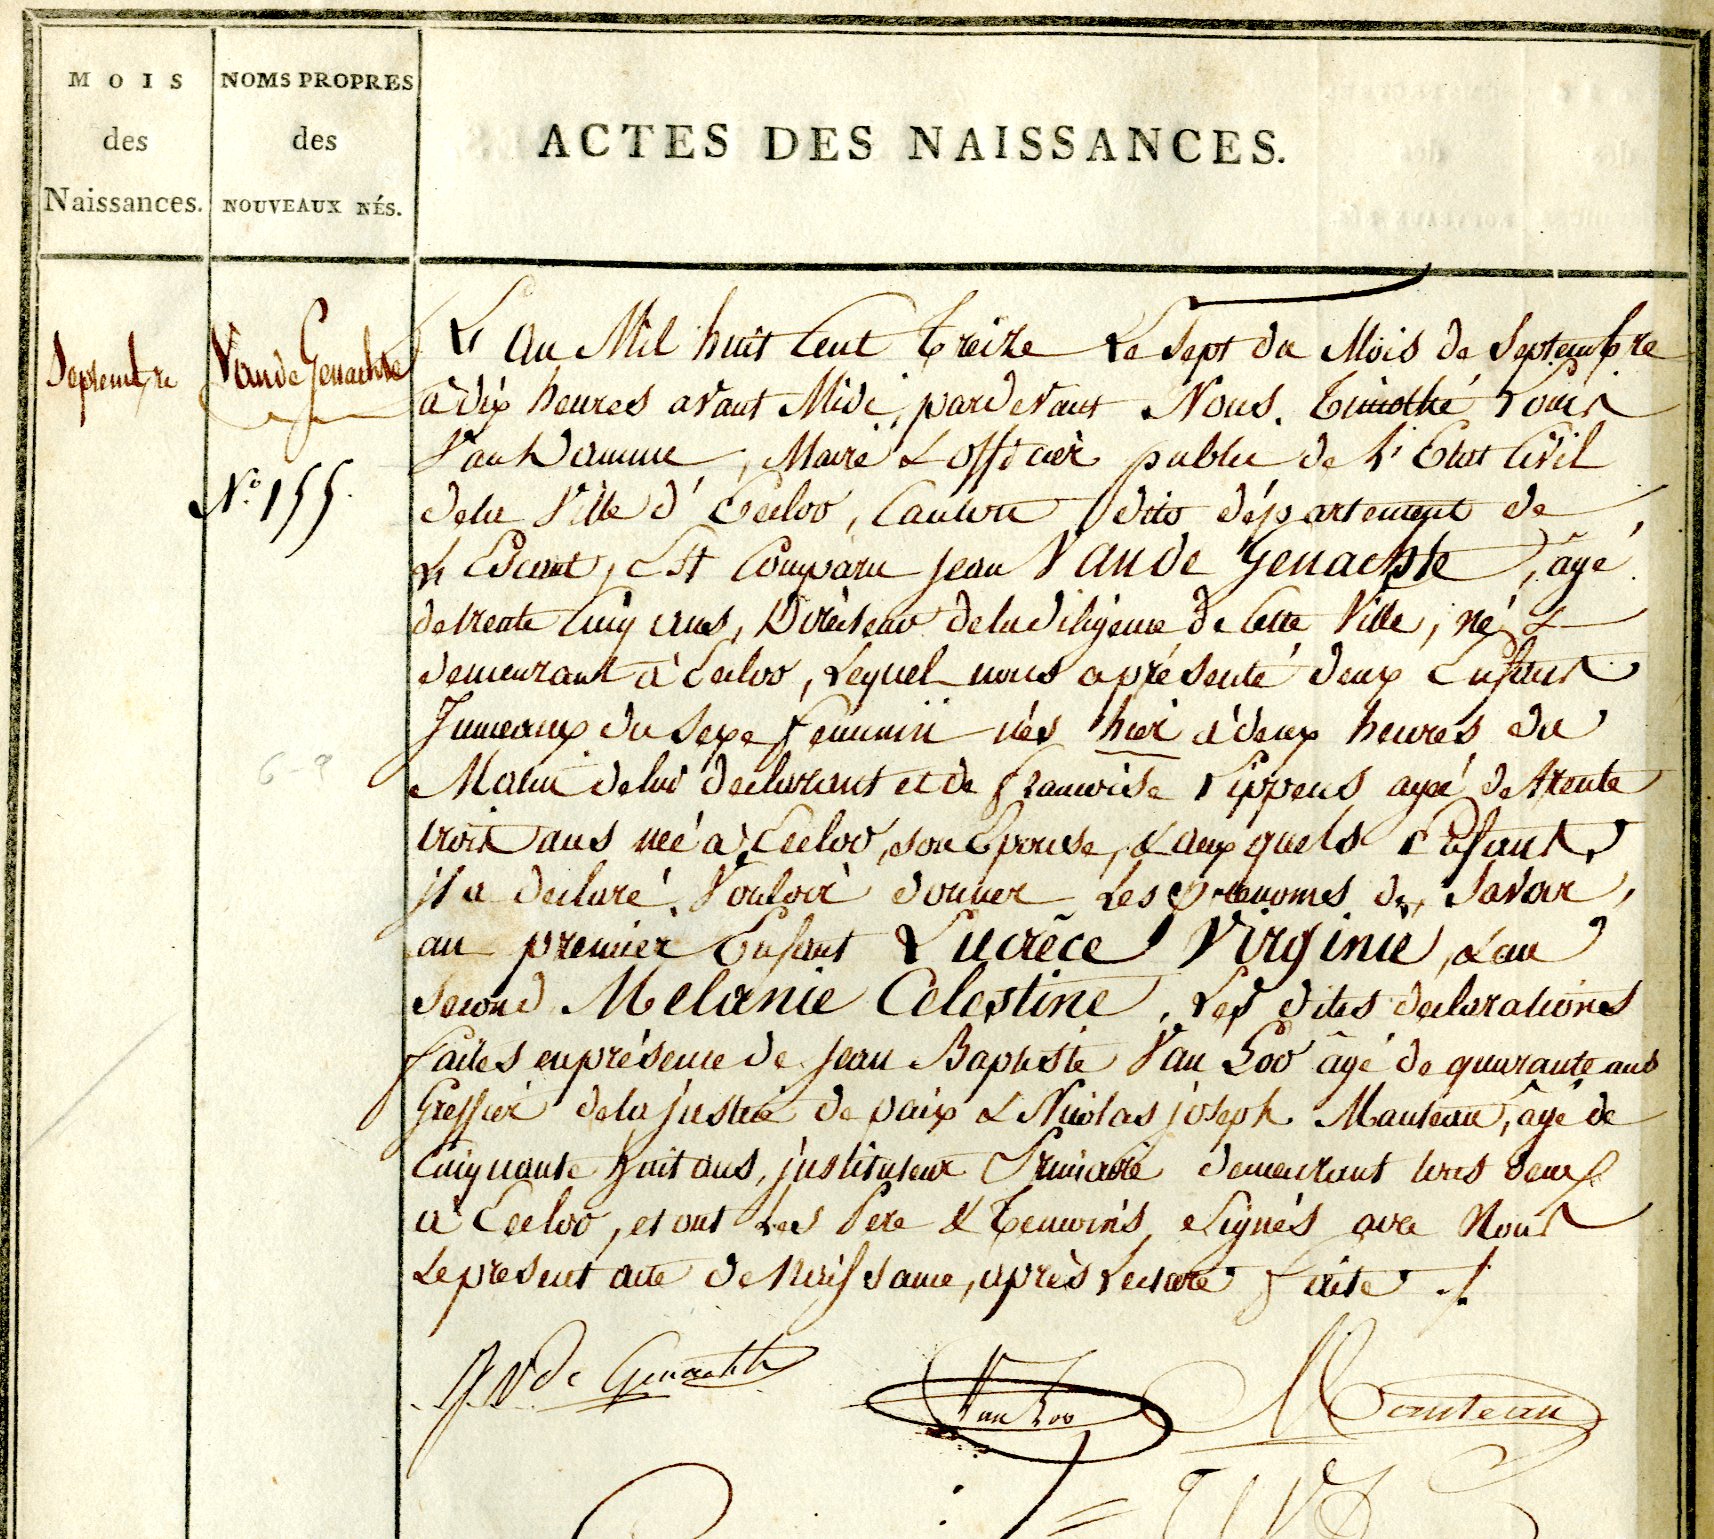 MOIS
des
Naissances.
NOMS PROPRES
des
NOUVEAUX NÉS.
ACTES DES NAISSANCES.
Septembre
Van de Genachte
N.º 155.
L'an Mil huit Cent Treize Le Sept du Mois de Septembre
à dix heures avant Midi, pardevant Nous. Timothé Louis
Van Damme, Maire & officier public de L'Etat Civil
dela Ville d'Eecloo, Canton dito département de
L'Escaut, Est Comparu jean Van de Genachte, âgé
de trente Cinq ans, Directeur dela diligence de Cette Ville, né &
demeurant à Eecloo, Lequel nous a présenté deux Enfans
Jumeaux du Sexe feminin nés hier à deux heures du
Matin de lui declarant et de francoise Lippens agée de trente
trois ans née à Eecloo, son Epouse, & auxquels Enfants
il a declaré Vouloir donner Les prenoms de, Savoir,
au premier Enfant Lucrèce Virginie, & au
Second Melanie Celestine, Les dites declarations
faites en présence de jean Baptiste Van Loo âgé de quarante ans
Greffier dela justice de paix & Nicolas joseph Manteau, âgé de
Cinquante huit ans, jnstituteur Primaire demeurant tous deux
à Eecloo, et ont Les Pere & Temoins Signés avec Nous
Le present acte de Naissance, après Lecture faite ./.
J V de Genachte
Van Loo
Manteau
6-9